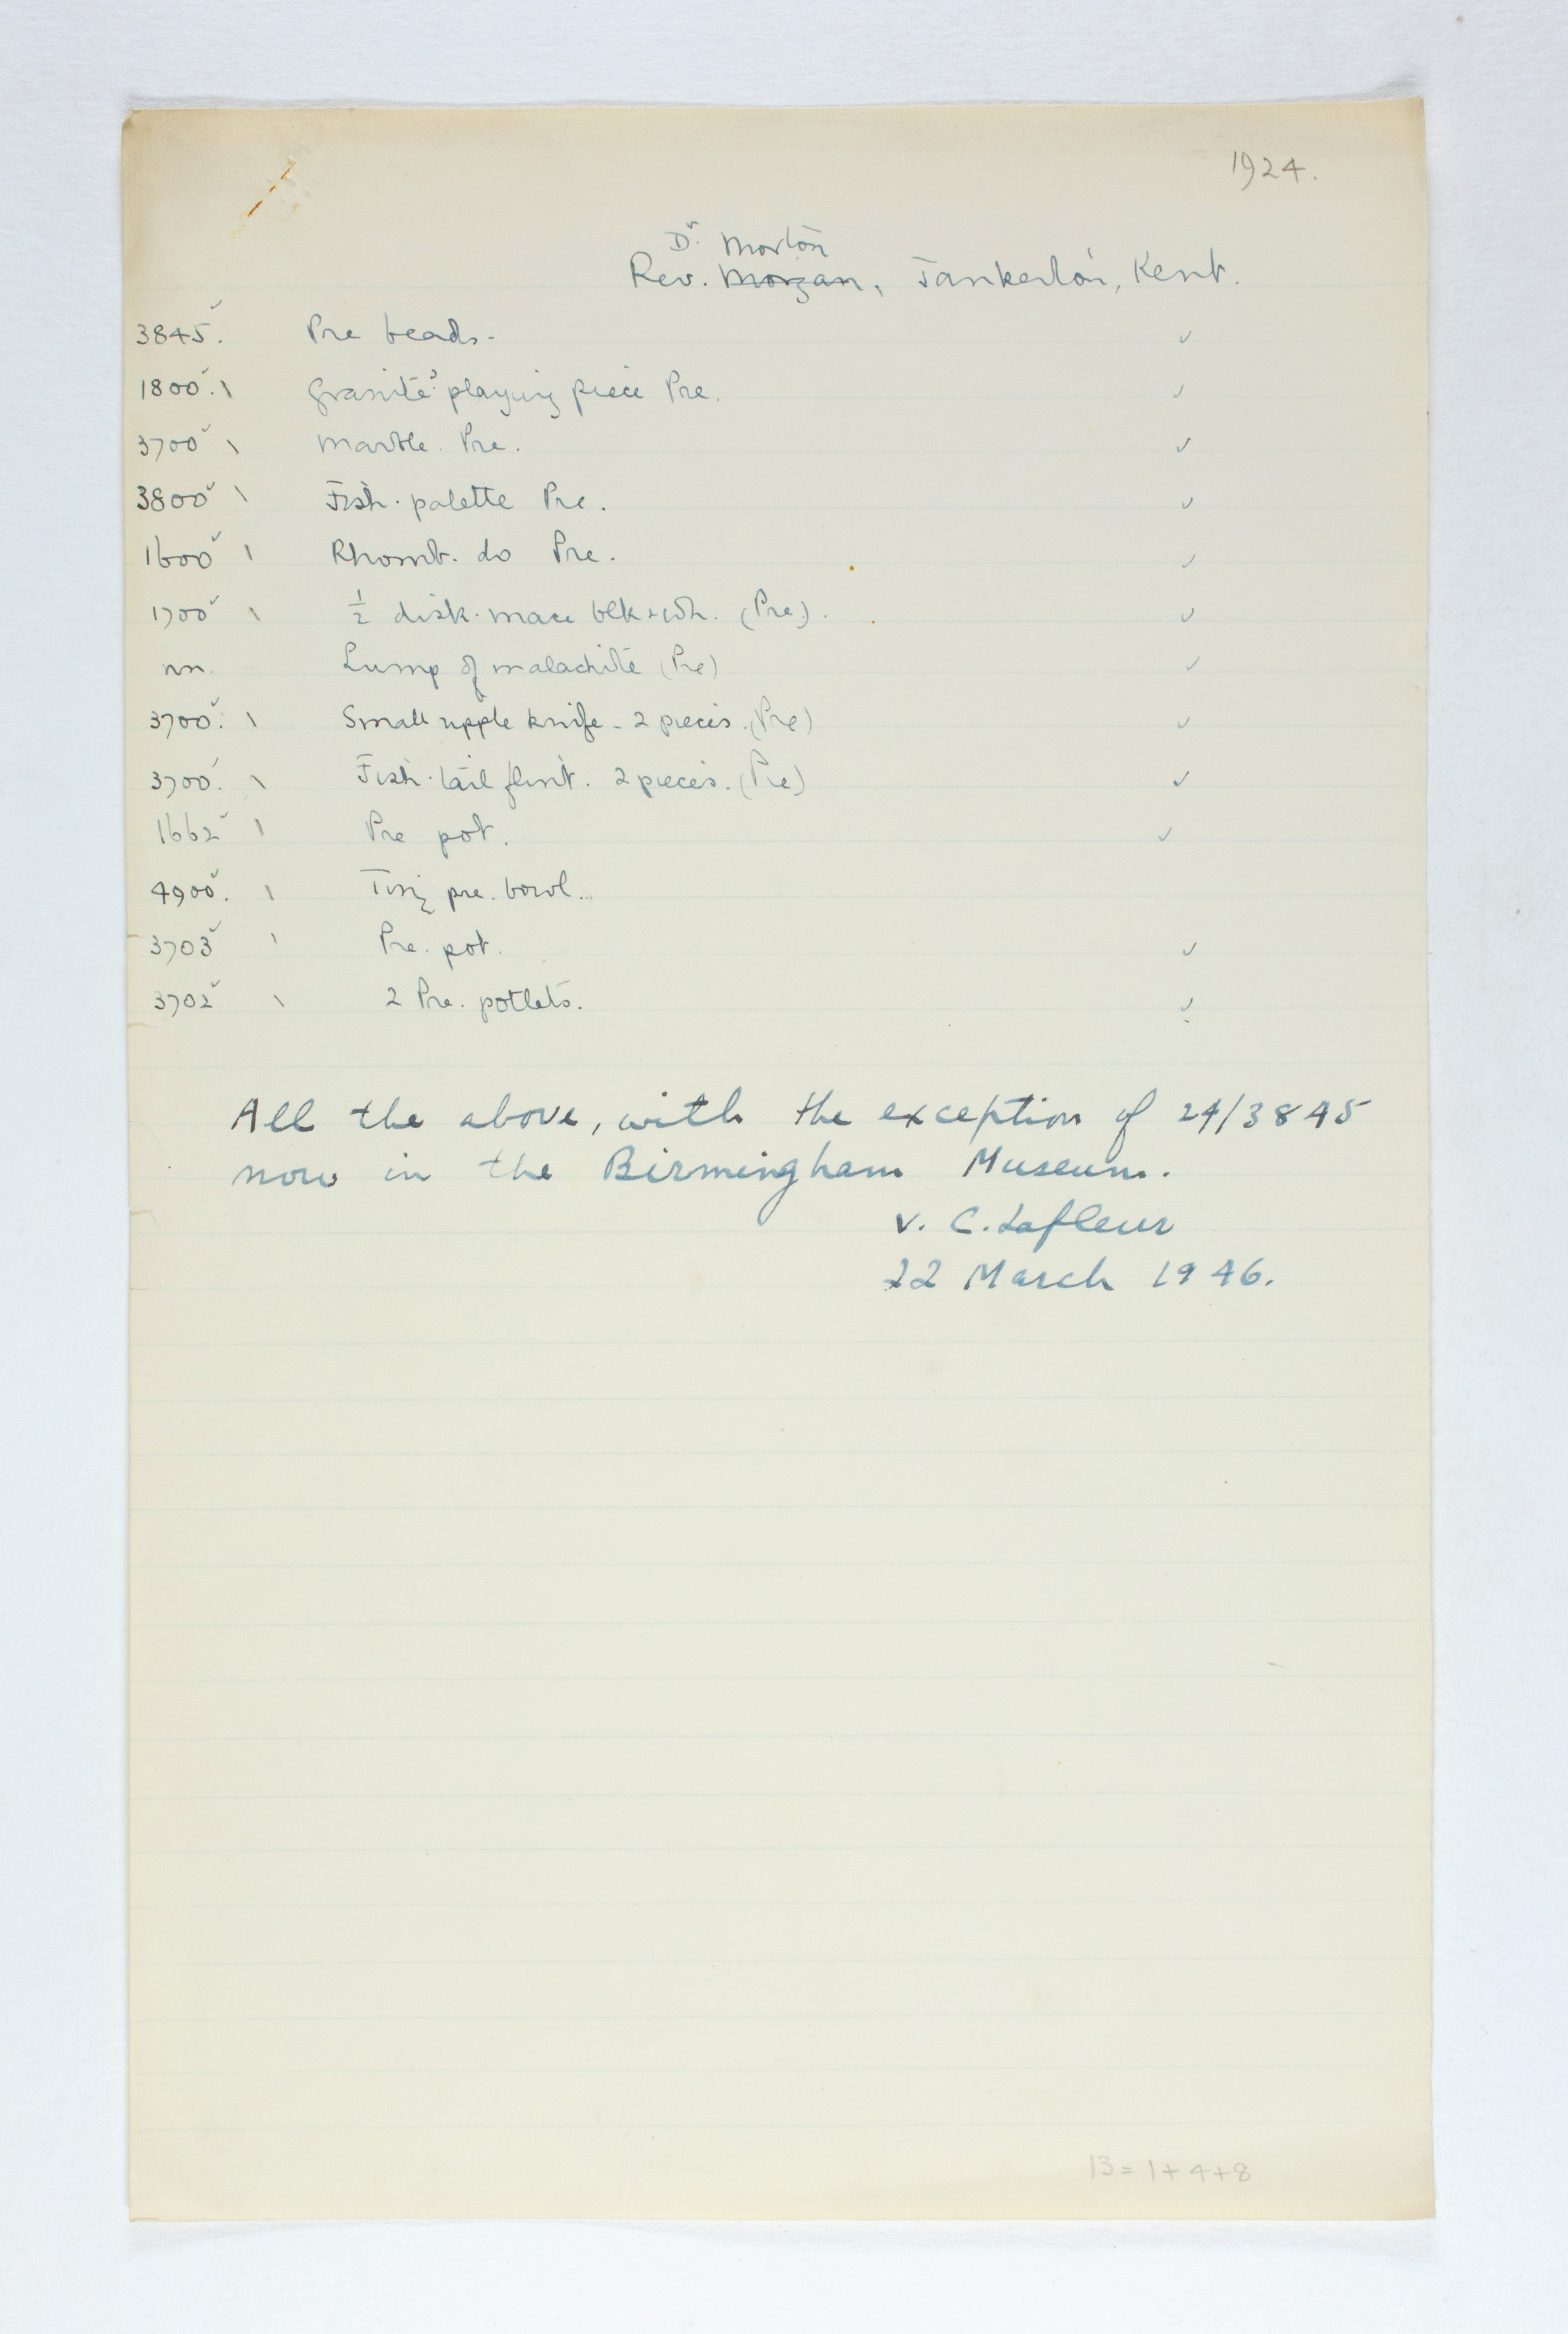 1924.
Dr. Morton
Rev. Morgan, Tankerton, Kent.
3845. Pre beads. ✓
1800. \ Granite? playing piece Pre. ✓
3700 \ Marble. Pre. ✓
3800 \ Fish. palette Pre. ✓
1600 \ Rhomb. do Pre. ✓
1700 \ 1/2 disk. mace blk + wh. (Pre). ✓
nn. Lump of malachite (Pre) ✓
3700. \ Small ripple knife - 2 pieces. (Pre) ✓
3700. \ Fish. tail flint. 2 pieces. (Pre) ✓
1662 \ Pre pot. ✓
4900. \ Tiny pre. bowl..
3703 \ Pre. pot. ✓
3702 \ 2 Pre. potlets. ✓
All the above, with the exception of 24/3845
now in the Birmingham Museum.
V. C. Lafleur
22 March 1946.
13 = 1 + 4 + 8